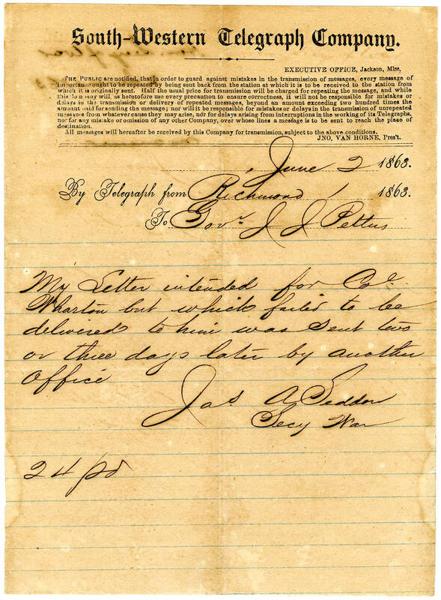 South-Western Telegraph Company.
EXECUTIVE OFFICE, Jackson, Miss,
THE PUBLIC are notified, that in order to guard against mistakes in the transmission of messages, every message of
importance ought to be repeated by being sent back from the station at which it is to be received to the station from
which it is originally sent. Half the usual price for transmission will be charged for repeating the message, and while
this Company will as heretofore use every precaution to ensure correctness, it will not be responsible for mistakes or
delays in the transmission or delivery of repeated messages, beyond an amount exceeding two hundred times the
amount paid for sending the message; nor will it be responsible for mistakes or delays in the transmission of unrepeated
messages from whatever cause they may arise, nor for delays arising from interruptions in the working of its Telegraphs,
nor for any mistake or omission of any other Company, over whose lines a message is to be sent to reach the place of
destination.
All messages will hereafter be received by this Company for transmission, subject to the above conditions.
JNO, VAN HORNE, Pres't.
June 2 1863.
By Telegraph from Richmond 1 1863.
To Govr J J Pettus
My Letter intended for Col
Wharton but which failed to be
delivered to him was sent two
or three days later by another
Office
Jas A Seddon
Secy War
24 pd